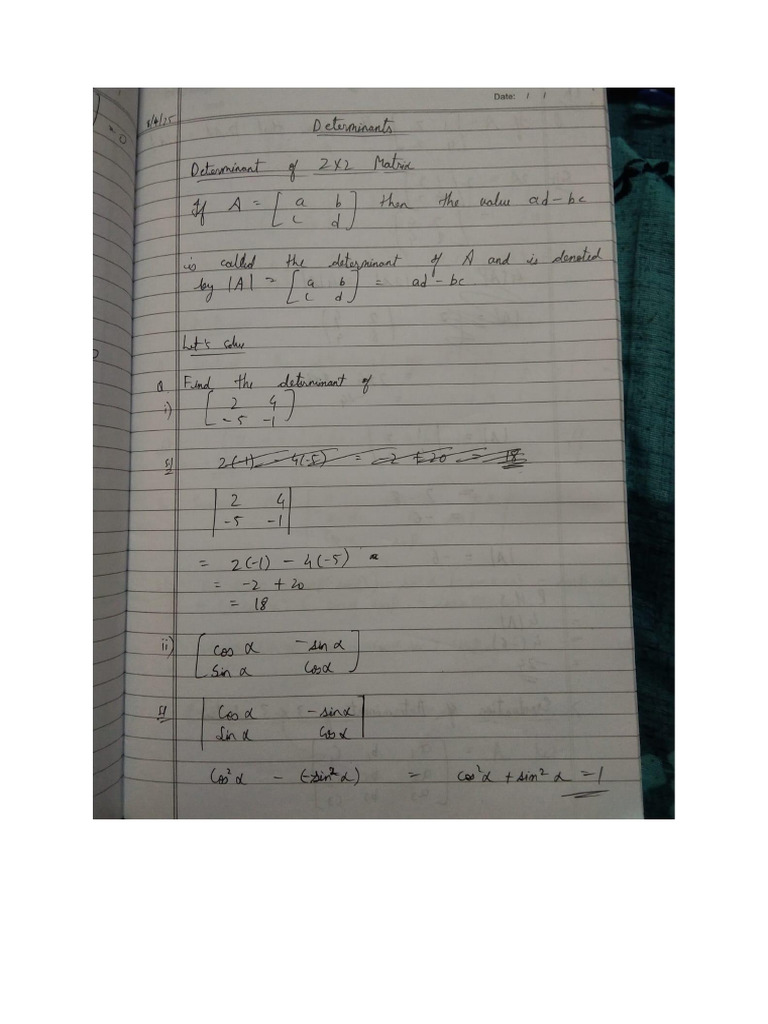 Date: / /
8/4/25
Determinants
Determinant of 2×2 Matrix
If A = [ a b
c d ] then the value ad - bc
is called the determinant of A and is denoted
by |A| = [ a b
c d ] = ad - bc
Let's solve
Q Find the determinant of
i) [ 2 4
-5 -1 ]
Sl 2(-1) - 4(-5) = -2 + 20 = 18
| 2 4
-5 -1 |
= 2(-1) - 4(-5)
= -2 + 20
= 18
ii) [ cos α - sin α
Sin α Cos α ]
Sl | Cos α - sin α
Sin α Cos α |
Cos² α - (-sin² α) = cos² α + sin² α = 1